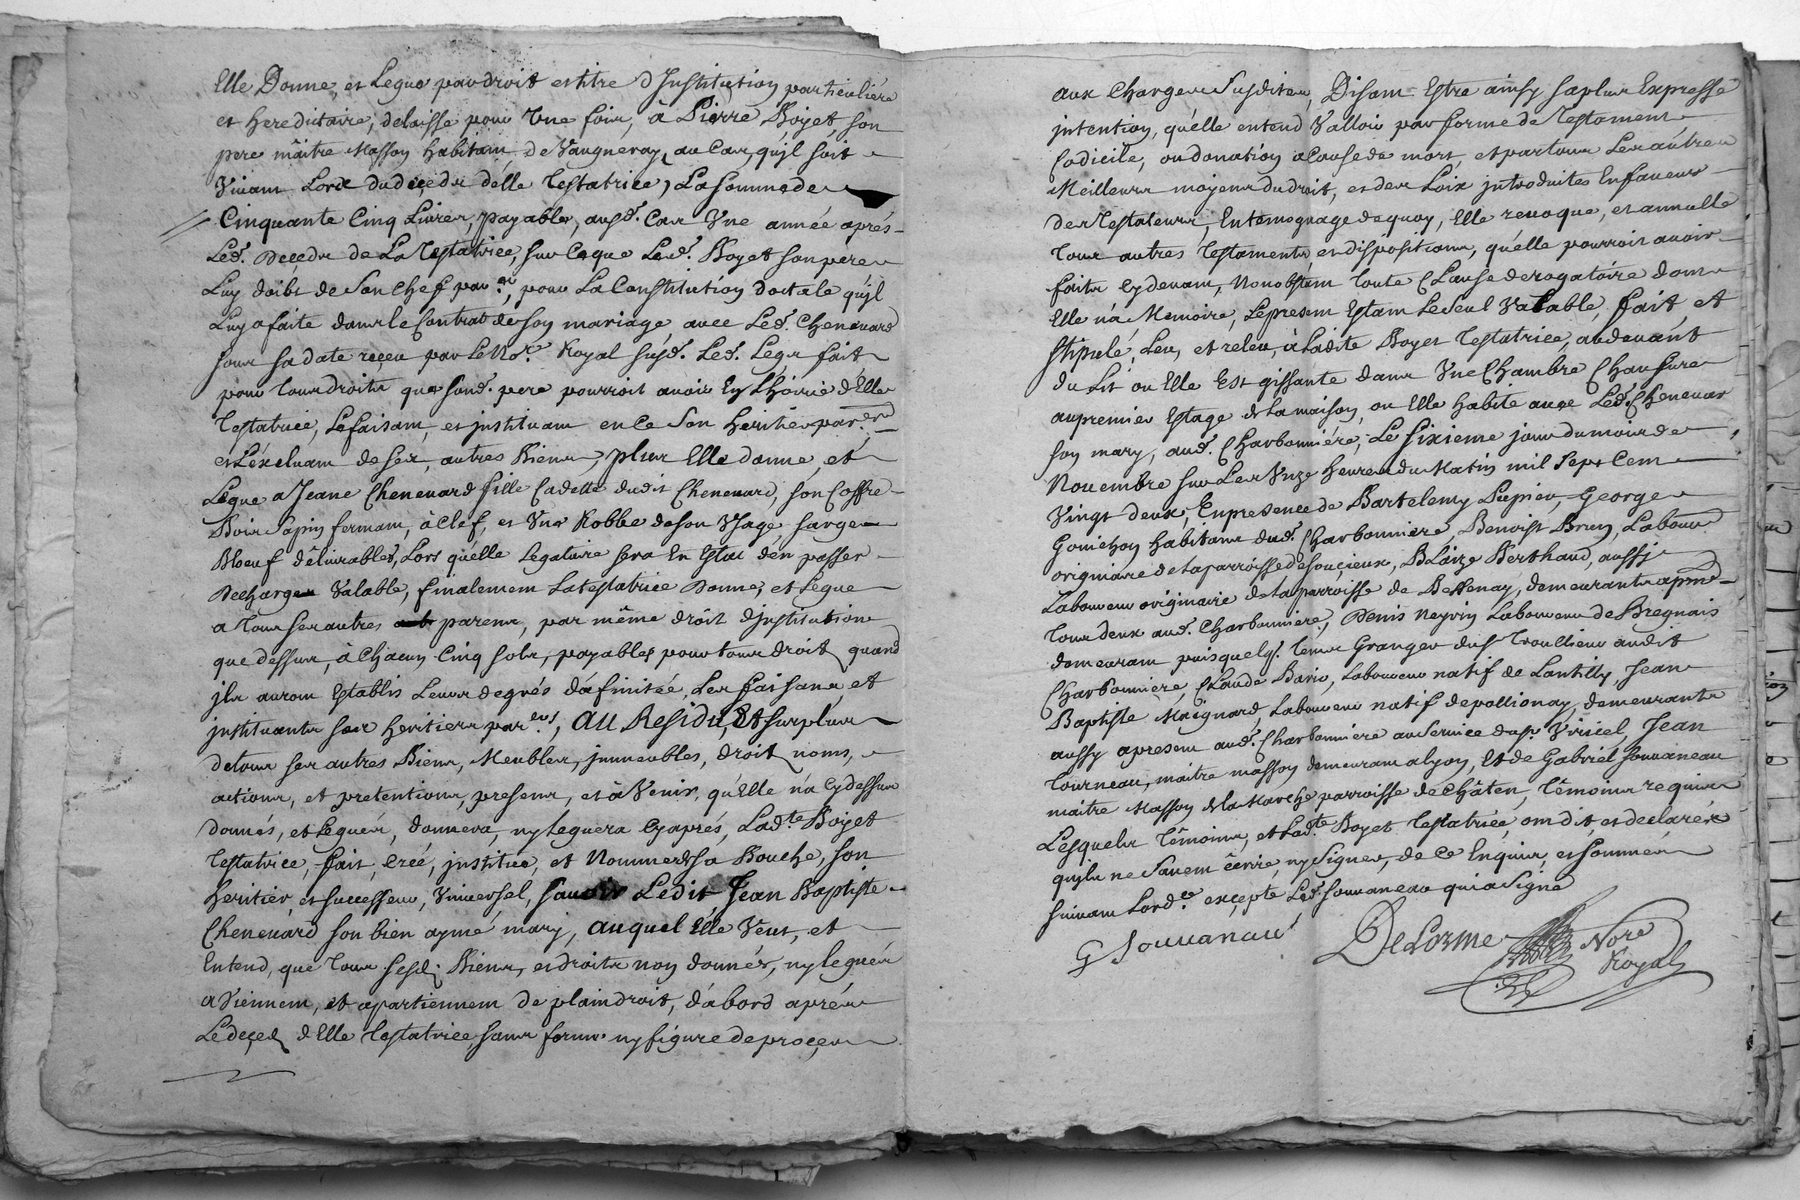 Elle Donne, et Legue par droit et titre d'Institution particuliére
et hereditaire, delaisse pour Une fois, à Pierre Boyet, son
pere mâitre Masson habitant de Vaugneray, au Cas, qu'jl soit
Vivant Lors du decedz d'elle Testatrice, La Somme de
Cinquante Cinq Livres, payables, aud. Cas Une année aprés
Led. Decedz de La Testatrice, sur Ce que Led. Boyet son pere
Luy doibt de Son Chef par.er, pour La Constitution doctale qu'jl
Luy a faite dans le Contrat de son mariage avec Led. Chenevard
sous sa date reçeu par Le No.re Royal susd. Led. Legs fait
pour tous droits que sond. pere pourroit avoir En L'hoirie d'Elle
Testatrice, Le faisant, et jnstituant en Ce Son heritier par.er
et L'éxcluant de ses, autres Biens, plus Elle donne, et
Legue a Jeane Chenevard fille Cadette dudit Chenevard, son Coffre
Bois Sapin fermant, à Clef, et Une Robbe de son Vsage sarge
Bloeuf délivrables, Lors qu'elle Legataire sera En Estat d'en passer
Decharge Valable, finalement La testatrice Donne, et Legue
a tous ses autres parens, par même droit d'jnstitution
que dessus, à Chacun Cinq sols, payables pour tous droit quand
jls auront Establis Leurs degrés d'áfinitée, Les faisant, et
jnstituants ses heritiers par.ers, AU Residu, Et surplus
de tous ses autres Biens, Meubles, jmmeubles, droit noms,
actions, et pretentions, presens, et à Venir, qu'Elle n'a Cy dessus
donnés, et Legués, donnera, ny leguera Cy aprés, Lad.te Boyet
Testatrice, fait, Creé, jnstitue, et Nomme de sa Bouche, son
heritier, et successeur, Universel, savoir Ledit Jean Baptiste
Chenevard son bien aymé mary, auquel Elle Veut, et
Entend, que tous sesd. Biens, et droits non donnés, ny legués
aviennent, et apartiennent de plain droit, d'abord aprés
Le deçed d'Elle Testatrice, sans forme ny figure de proçes
aux Charges Susdites, Disant Estre ainsy sa plus Expresse
jntention, qu'elle entend Valloir par forme de Testament
Codicile, ou donation a Cause de mort, et par tous Les autres
Meilleurs moyens du droit, et des Loix jntroduites En faveur
des Testateurs, En temognage de quoy, Elle revoque, et annulle
tous autres Testaments et dispositions, qu'elle pourroit avoir
faits cy devant, Nonobstant toute Clause derogatoire dont
Elle n'a Memoire, Le present Estant Le Seul Valable, fait, et
stipulé, Leu, et releu, à Ladite Boyet Testatrice, au devant
du Lit ou Elle Est gissante dans Vne Chambre Chaufure
au premier Estage de la maison, ou Elle habite avec Led. Chenevar
son mary, aud. Charbonniére, Le sixieme jour du mois de
Novembre sur Les Vnze heures du Matin mil Sept Cent
Vingt deux, En presence de Bartelemy Pupier, George
Gonichon habitans dud. Charbonniére, Benoist Brun, Labour
originaire de la parroisse de Souçieux, Blaize Berthaud, aussi
Laboureur originaire de la parroisse de Bessenay, demeurants apnt
tous deux aud. Charbonniére, Denis Neyrin Laboureur de Bregnais
demeurant puis quelq. tems Granger du S.r Troullieur audit
Charbonniére, Claude Bario, Laboureur natif de Lantilly, Jean
Baptiste Maignard, Laboureur natif de pollionay, demeurants
aussy apresent aud. Charbonniére au Service du S.r Viricel, Jean
Tourneau, maitre masson demeurant a lyon, Et de Gabriel Jouvaneau
maitre Masson de la Marche parroisse de Châten, témoins requis
Lesquels Témoins, et Lad.te Boyet Testatrice ont dit, et declaré
qu'jls ne Savent écrire, ny Signer, de Ce Enquis, et sommés
suivant Lord.ce excepte Led. Jouvaneau qui a Signé
G Jouvanau
DeLorme Nore
Royal